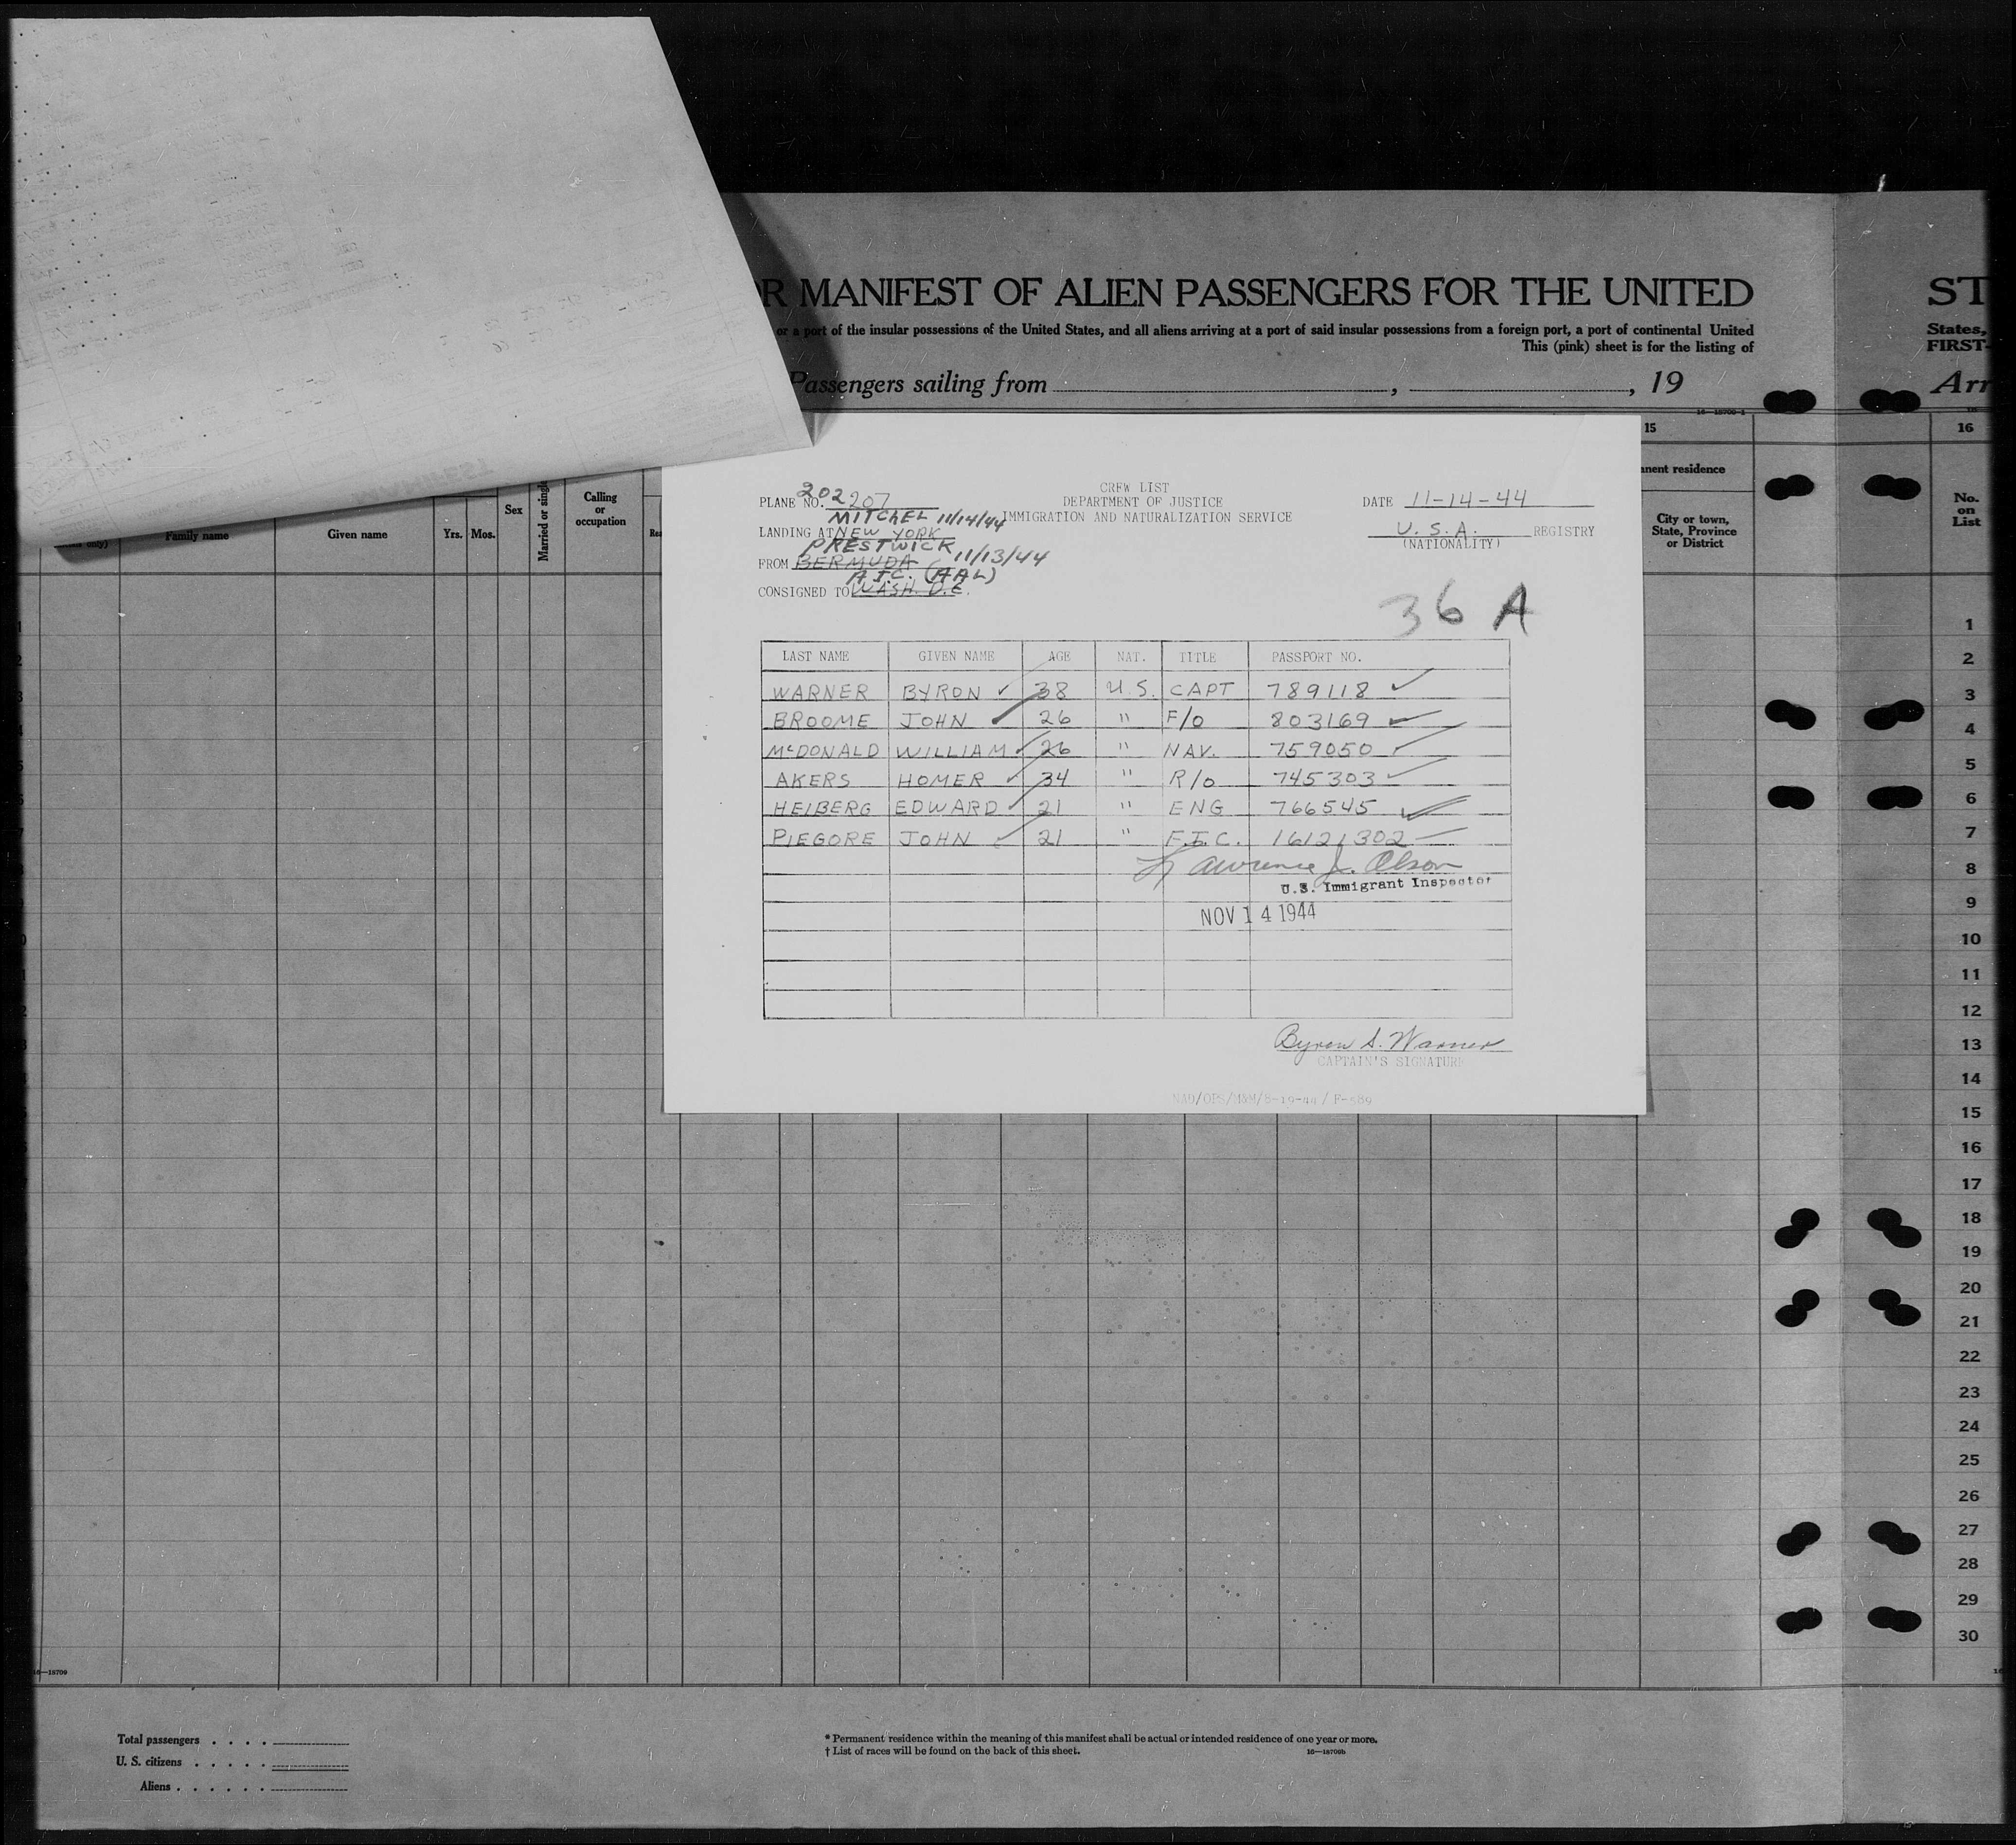 R MANIFEST OF ALIEN PASSENGERS FOR THE UNITED
ST
or a port of the insular possessions of the United States, and all aliens arriving at a port of said insular possessions from a foreign port, a port of continental United
States,
This (pink) sheet is for the listing of
FIRST-
Passengers sailing from , , 19
Arr
15
16
nent residence
City or town, State, Province or District
No. on List
Family name
Given name
Yrs. Mos.
Sex
Married or single
Calling or occupation
CREW LIST
DEPARTMENT OF JUSTICE
IMMIGRATION AND NATURALIZATION SERVICE
PLANE NO. 202 207
DATE 11-14-44
MITCHEL 11/14/44
LANDING AT NEW YORK
U.S.A. REGISTRY
(NATIONALITY)
PRESTWICK 11/13/44
FROM BERMUDA
A.T.C. (AAL)
CONSIGNED TO WASH. D.C.
36 A
LAST NAME GIVEN NAME AGE NAT. TITLE PASSPORT NO.
WARNER BYRON 38 U.S. CAPT 789118
BROOME JOHN 26 " F/O 803169
McDONALD WILLIAM 26 " NAV. 759050
AKERS HOMER 34 " R/O 745303
HEIBERG EDWARD 21 " ENG 766545
PIEGORE JOHN 21 " F.T.C. 16121302
Lawrence J. Olson
U.S. Immigrant Inspector
NOV 14 1944
Byron S. Warner
CAPTAIN'S SIGNATURE
NAD/OPS/M&M/8-19-44/F-589
1
2
3
4
5
6
7
8
9
10
11
12
13
14
15
16
17
18
19
20
21
22
23
24
25
26
27
28
29
30
16—18709
Total passengers . . . .
U. S. citizens . . . . .
Aliens . . . . . .
* Permanent residence within the meaning of this manifest shall be actual or intended residence of one year or more.
† List of races will be found on the back of this sheet.
16—18709b